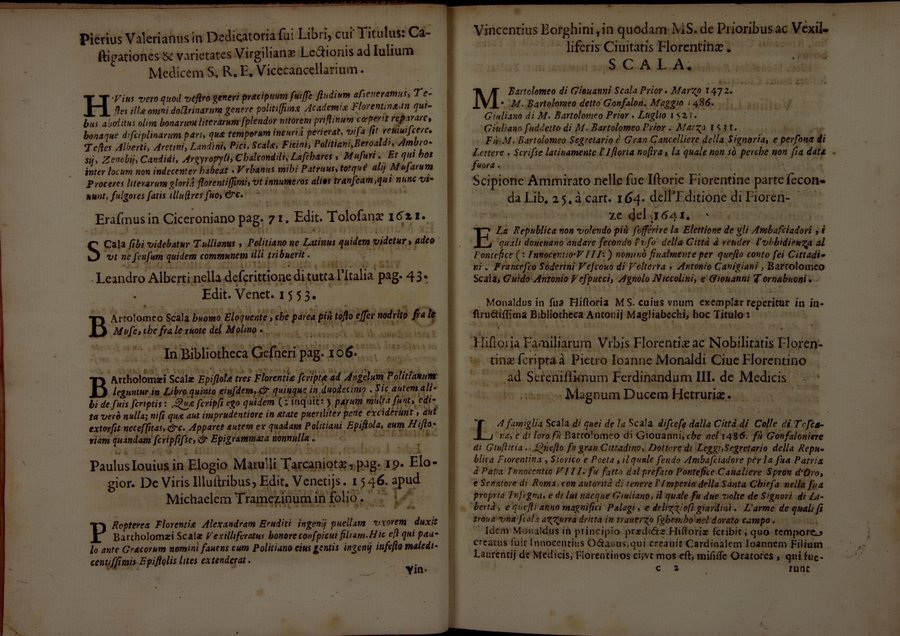 Pierius Valerianus in Dedicatoria sui Libri, cui Titulus: Ca-
stigationes & varietates Virgilianæ Lectionis ad Iulium
Medicem S. R. E. Vicecancellarium.
HVius vero quod vestro generi præcipuum fuisse studium asseueramus, Te-
stes illæ omni doctrinarum genere politissimæ Academiæ Florentinæ in qui-
bus abolitus olim bonarum literarum splendor nitorem pristinum cœperit reparare,
bonaque disciplinarum pars, quæ temporum incuria perierat, visa sit reuiuiscere.
Testes Alberti, Aretini, Landini, Pici, Scalæ, Ficini, Politiani, Beroaldi, Ambro-
sij, Zenobij, Candidi, Argyropyli, Chalcondili, Laschares, Musuri. Et qui hos
inter locum non indecenter habeat Vrbanus mihi Patruus, totque alij Musarum
Proceres literarum gloria florentissimi, vt innumeros alios transeam, qui nunc vi-
uunt, fulgores satis illustres suo, &c.
Erasmus in Ciceroniano pag. 71. Edit. Tolosanæ 1621.
SCala sibi videbatur Tullianus, Politiano ne Latinus quidem videtur, adeo
vt ne sensum quidem communem illi tribuerit.
Leandro Alberti nella descrittione di tutta l'Italia pag. 43.
Edit. Venet. 1553.
BArtolomeo Scala buomo Eloquente, che parea più tosto esser nodrito fra le
Muse, che fra le ruote del Molino.
In Bibliotheca Gesneri pag. 106.
BArtholomæi Scalæ Epistolæ tres Florentiæ scriptæ ad Angelum Politianum
leguntur in Libro quinto eiusdem, & quinque in duodecimo. Sic autem ali-
bi de suis scriptis: Quæ scripsi ego quidem (: inquit:) parum multa sunt, edi-
ta verò nulla; nisi quæ aut imprudentiore in ætate pueriliter pene exciderunt, aut
extorsit necessitas, &c. Apparet autem ex quadam Politiani Epistola, eum Histo-
riam quandam scripsisse, & Epigrammata nonnulla.
Paulus Iouius in Elogio Marulli Tarcaniotæ, pag. 19. Elo-
gior. De Viris Illustribus, Edit. Venetijs. 1546. apud
Michaelem Tramezinum in folio.
PRopterea Florentiæ Alexandram Eruditi ingenij puellam vxorem duxit
Bartholomæi Scalæ Vexilliferatus honore conspicui filiam. Hic est qui pau-
lo ante Græcorum nomini fauens cum Politiano eius gentis ingenij infesto maledi-
centissimis Epistolis lites extenderat.
Vin-
Vincentius Borghini, in quodam MS. de Prioribus ac Vexil-
liferis Ciuitatis Florentinæ.
SCALA.
M. Bartolomeo di Giouanni Scala Prior. Marzo 1472.
M. Bartolomeo detto Gonfalon. Maggio 1486.
Giuliano di M. Bartolomeo Prior. Luglio 1521.
Giuliano suddetto di M. Bartolomeo Prior. Marzo 1531.
Fù M. Bartolomeo Segretario e Gran Cancelliere della Signoria, e persona di
Lettere. Scrisse latinamente l'Istoria nostra, la quale non sò perche non sia data
fuora.
Scipione Ammirato nelle sue Istorie Fiorentine parte secon-
da Lib. 25. à cart. 164. dell'Editione di Fioren-
ze del 1641.
E La Republica non volendo più sofferire la Elettione de gli Ambasciadori, i
quali doueuano andare secondo l'vso della Città à render l'vbbidienza al
Pontefice (: Innocentio VIII:) nominò finalmente per questo conto sei Cittadi-
ni. Francesco Soderini Vescouo di Volterra, Antonio Canigiani, Bartolomeo
Scala, Guido Antonio Vespucci, Agnolo Niccolini, e Giouanni Tornabuoni.
Monaldus in sua Historia MS. cuius vnum exemplar reperitur in in-
structissima Bibliotheca Antonij Magliabechi, hoc Titulo:
Historia Familiarum Vrbis Florentiæ ac Nobilitatis Floren-
tinæ scripta à Pietro Ioanne Monaldi Ciue Florentino
ad Serenissimum Ferdinandum III. de Medicis
Magnum Ducem Hetruriæ.
LA famiglia Scala di quei de la Scala discese dalla Città di Colle di Tosca-
na, e di loro fù Bartolomeo di Giouanni, che nel 1486. fù Gonfaloniere
di Giustitia. Questo fù gran Cittadino, Dottore di Leggi, Segretario della Repu-
blica Fiorentina, Storico e Poeta, il quale fendo Ambasciadore per la sua Patria
à Papa Innocentio VIII. fu fatto dal prefato Pontefice Caualiere Spron d'Oro,
e Senatore di Roma, con autorità di tenere l'Imperio della Santa Chiesa nella sua
propria Insegna, e di lui nacque Giuliano, il quale fu due volte de Signori di Li-
bertà, e questi anno magnifici Palagi, e delizzosi giardini. L'arme de quali si
troua vna scala azzurra dritta in trauerzo sghembo nel dorato campo.
Idem Monaldus in principio prædictæ Historiæ scribit, quo tempore
creatus fuit Innocentius Octauus, qui creauit Cardinalem Ioannem Filium
Laurentij de Medicis, Florentinos eius mos est, misisse Oratores, qui fue-
c 2
runt